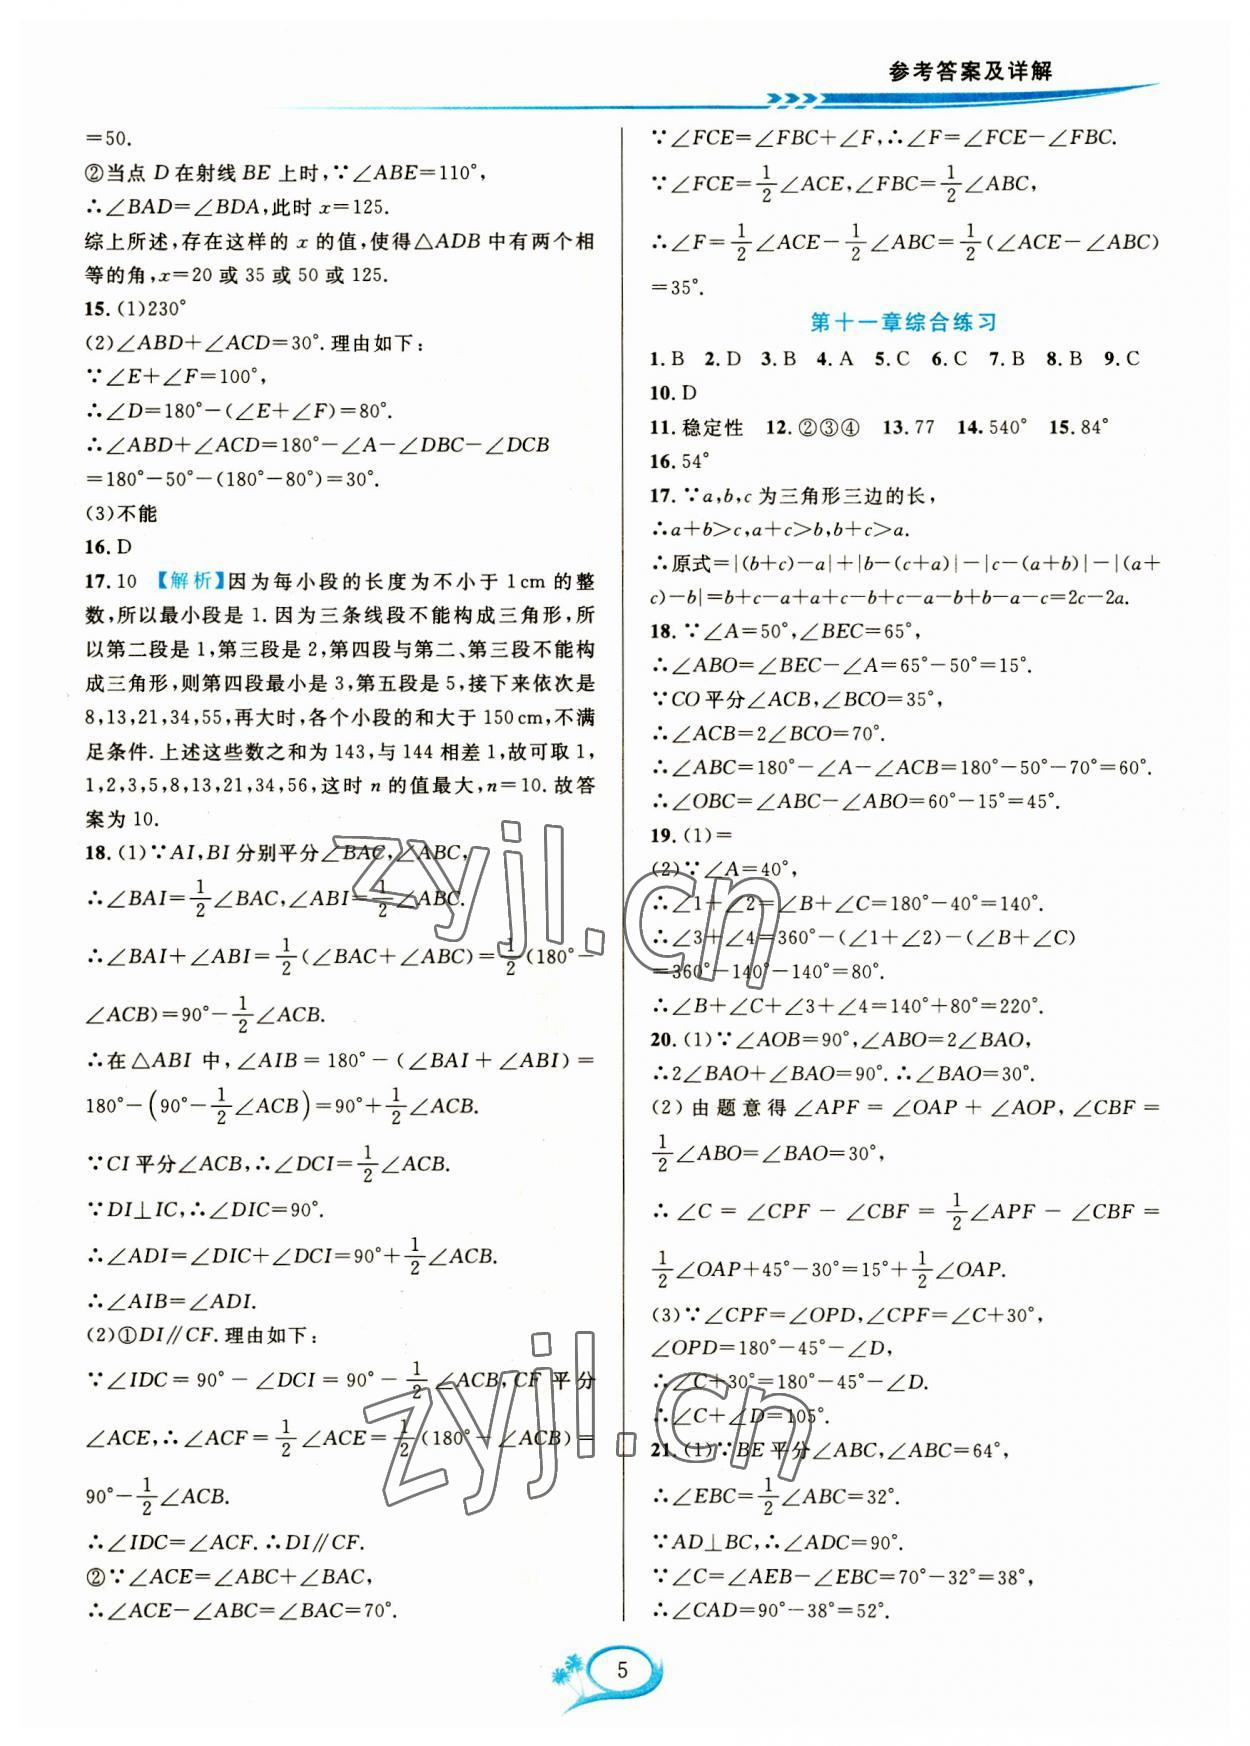 参考答案及详解
=50.
②当点 D 在射线 BE 上时,∵∠ABE=110°,
∴∠BAD=∠BDA,此时 x=125.
综上所述,存在这样的 x 的值,使得△ADB 中有两个相
等的角,x=20 或 35 或 50 或 125.
15. (1)230°
(2)∠ABD+∠ACD=30°.理由如下:
∵∠E+∠F=100°,
∴∠D=180°-(∠E+∠F)=80°.
∴∠ABD+∠ACD=180°-∠A-∠DBC-∠DCB
=180°-50°-(180°-80°)=30°.
(3)不能
16. D
17. 10 【解析】因为每小段的长度为不小于 1 cm 的整
数,所以最小段是 1.因为三条线段不能构成三角形,所
以第二段是 1,第三段是 2,第四段与第二、第三段不能构
成三角形,则第四段最小是 3,第五段是 5,接下来依次是
8,13,21,34,55,再大时,各个小段的和大于 150 cm,不满
足条件.上述这些数之和为 143,与 144 相差 1,故可取 1,
1,2,3,5,8,13,21,34,56,这时 n 的值最大,n=10.故答
案为 10.
18. (1)∵AI,BI 分别平分∠BAC,∠ABC,
∴∠BAI=1/2∠BAC,∠ABI=1/2∠ABC.
∴∠BAI+∠ABI=1/2(∠BAC+∠ABC)=1/2(180°-
∠ACB)=90°-1/2∠ACB.
∴在△ABI 中,∠AIB=180°-(∠BAI+∠ABI)=
180°-(90°-1/2∠ACB)=90°+1/2∠ACB.
∵CI 平分∠ACB,∴∠DCI=1/2∠ACB.
∵DI⊥IC,∴∠DIC=90°.
∴∠ADI=∠DIC+∠DCI=90°+1/2∠ACB.
∴∠AIB=∠ADI.
(2)①DI∥CF.理由如下:
∵∠IDC=90°-∠DCI=90°-1/2∠ACB,CF 平分
∠ACE,∴∠ACF=1/2∠ACE=1/2(180°-∠ACB)=
90°-1/2∠ACB.
∴∠IDC=∠ACF.∴DI∥CF.
②∵∠ACE=∠ABC+∠BAC,
∴∠ACE-∠ABC=∠BAC=70°.
∵∠FCE=∠FBC+∠F,∴∠F=∠FCE-∠FBC.
∵∠FCE=1/2∠ACE,∠FBC=1/2∠ABC,
∴∠F=1/2∠ACE-1/2∠ABC=1/2(∠ACE-∠ABC)
=35°.
第十一章综合练习
1. B 2. D 3. B 4. A 5. C 6. C 7. B 8. B 9. C
10. D
11. 稳定性 12. ②③④ 13. 77 14. 540° 15. 84°
16. 54°
17. ∵a,b,c 为三角形三边的长,
∴a+b>c,a+c>b,b+c>a.
∴原式=|(b+c)-a|+|b-(c+a)|-|c-(a+b)|-|(a+
c)-b|=b+c-a+a+c-b+c-a-b+b-a-c=2c-2a.
18. ∵∠A=50°,∠BEC=65°,
∴∠ABO=∠BEC-∠A=65°-50°=15°.
∵CO 平分∠ACB,∠BCO=35°,
∴∠ACB=2∠BCO=70°.
∴∠ABC=180°-∠A-∠ACB=180°-50°-70°=60°.
∴∠OBC=∠ABC-∠ABO=60°-15°=45°.
19. (1)=
(2)∵∠A=40°,
∴∠1+∠2=∠B+∠C=180°-40°=140°.
∴∠3+∠4=360°-(∠1+∠2)-(∠B+∠C)
=360°-140°-140°=80°.
∴∠B+∠C+∠3+∠4=140°+80°=220°.
20. (1)∵∠AOB=90°,∠ABO=2∠BAO,
∴2∠BAO+∠BAO=90°.∴∠BAO=30°.
(2)由题意得∠APF=∠OAP+∠AOP,∠CBF=
1/2∠ABO=∠BAO=30°,
∴∠C=∠CPF-∠CBF=1/2∠APF-∠CBF=
1/2∠OAP+45°-30°=15°+1/2∠OAP.
(3)∵∠CPF=∠OPD,∠CPF=∠C+30°,
∠OPD=180°-45°-∠D,
∴∠C+30°=180°-45°-∠D.
∴∠C+∠D=105°.
21. (1)∵BE 平分∠ABC,∠ABC=64°,
∴∠EBC=1/2∠ABC=32°.
∵AD⊥BC,∴∠ADC=90°.
∵∠C=∠AEB-∠EBC=70°-32°=38°,
∴∠CAD=90°-38°=52°.
zyjl.cn
zyjl.cn
5